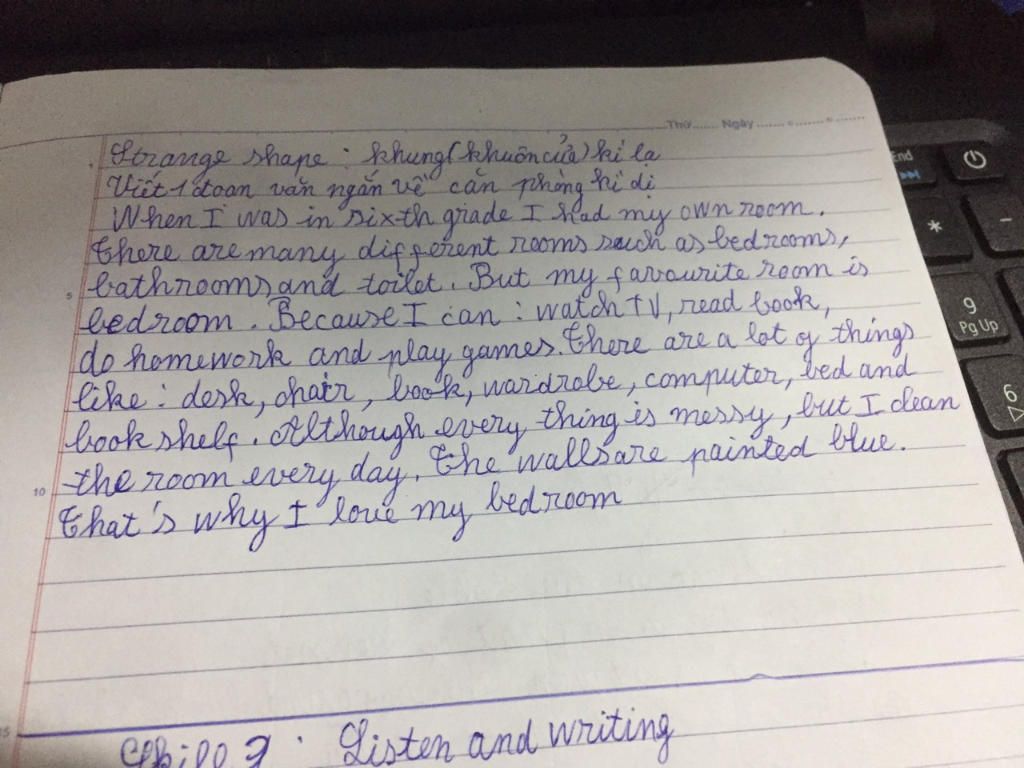 Thứ....... Ngày
Strange shape : khung(khuôn cửa) kì lạ
Viết 1 đoan văn ngắn về căn phòng kì dị
When I was in sixth grade I had my own room.
there are many different rooms such as bedrooms,
5
bathrooms and toilet. But my favourite room is
bedroom. Because I can : watch TV, read book,
do homework and play games. there are a lot of things
like : desk, chair, book, wardrobe, computer, bed and
book shelf. Although every thing is messy, but I clean
10
the room every day. the walls are painted blue.
that's why I love my bedroom
Listen and writing
End
*
-
9
Pg Up
6